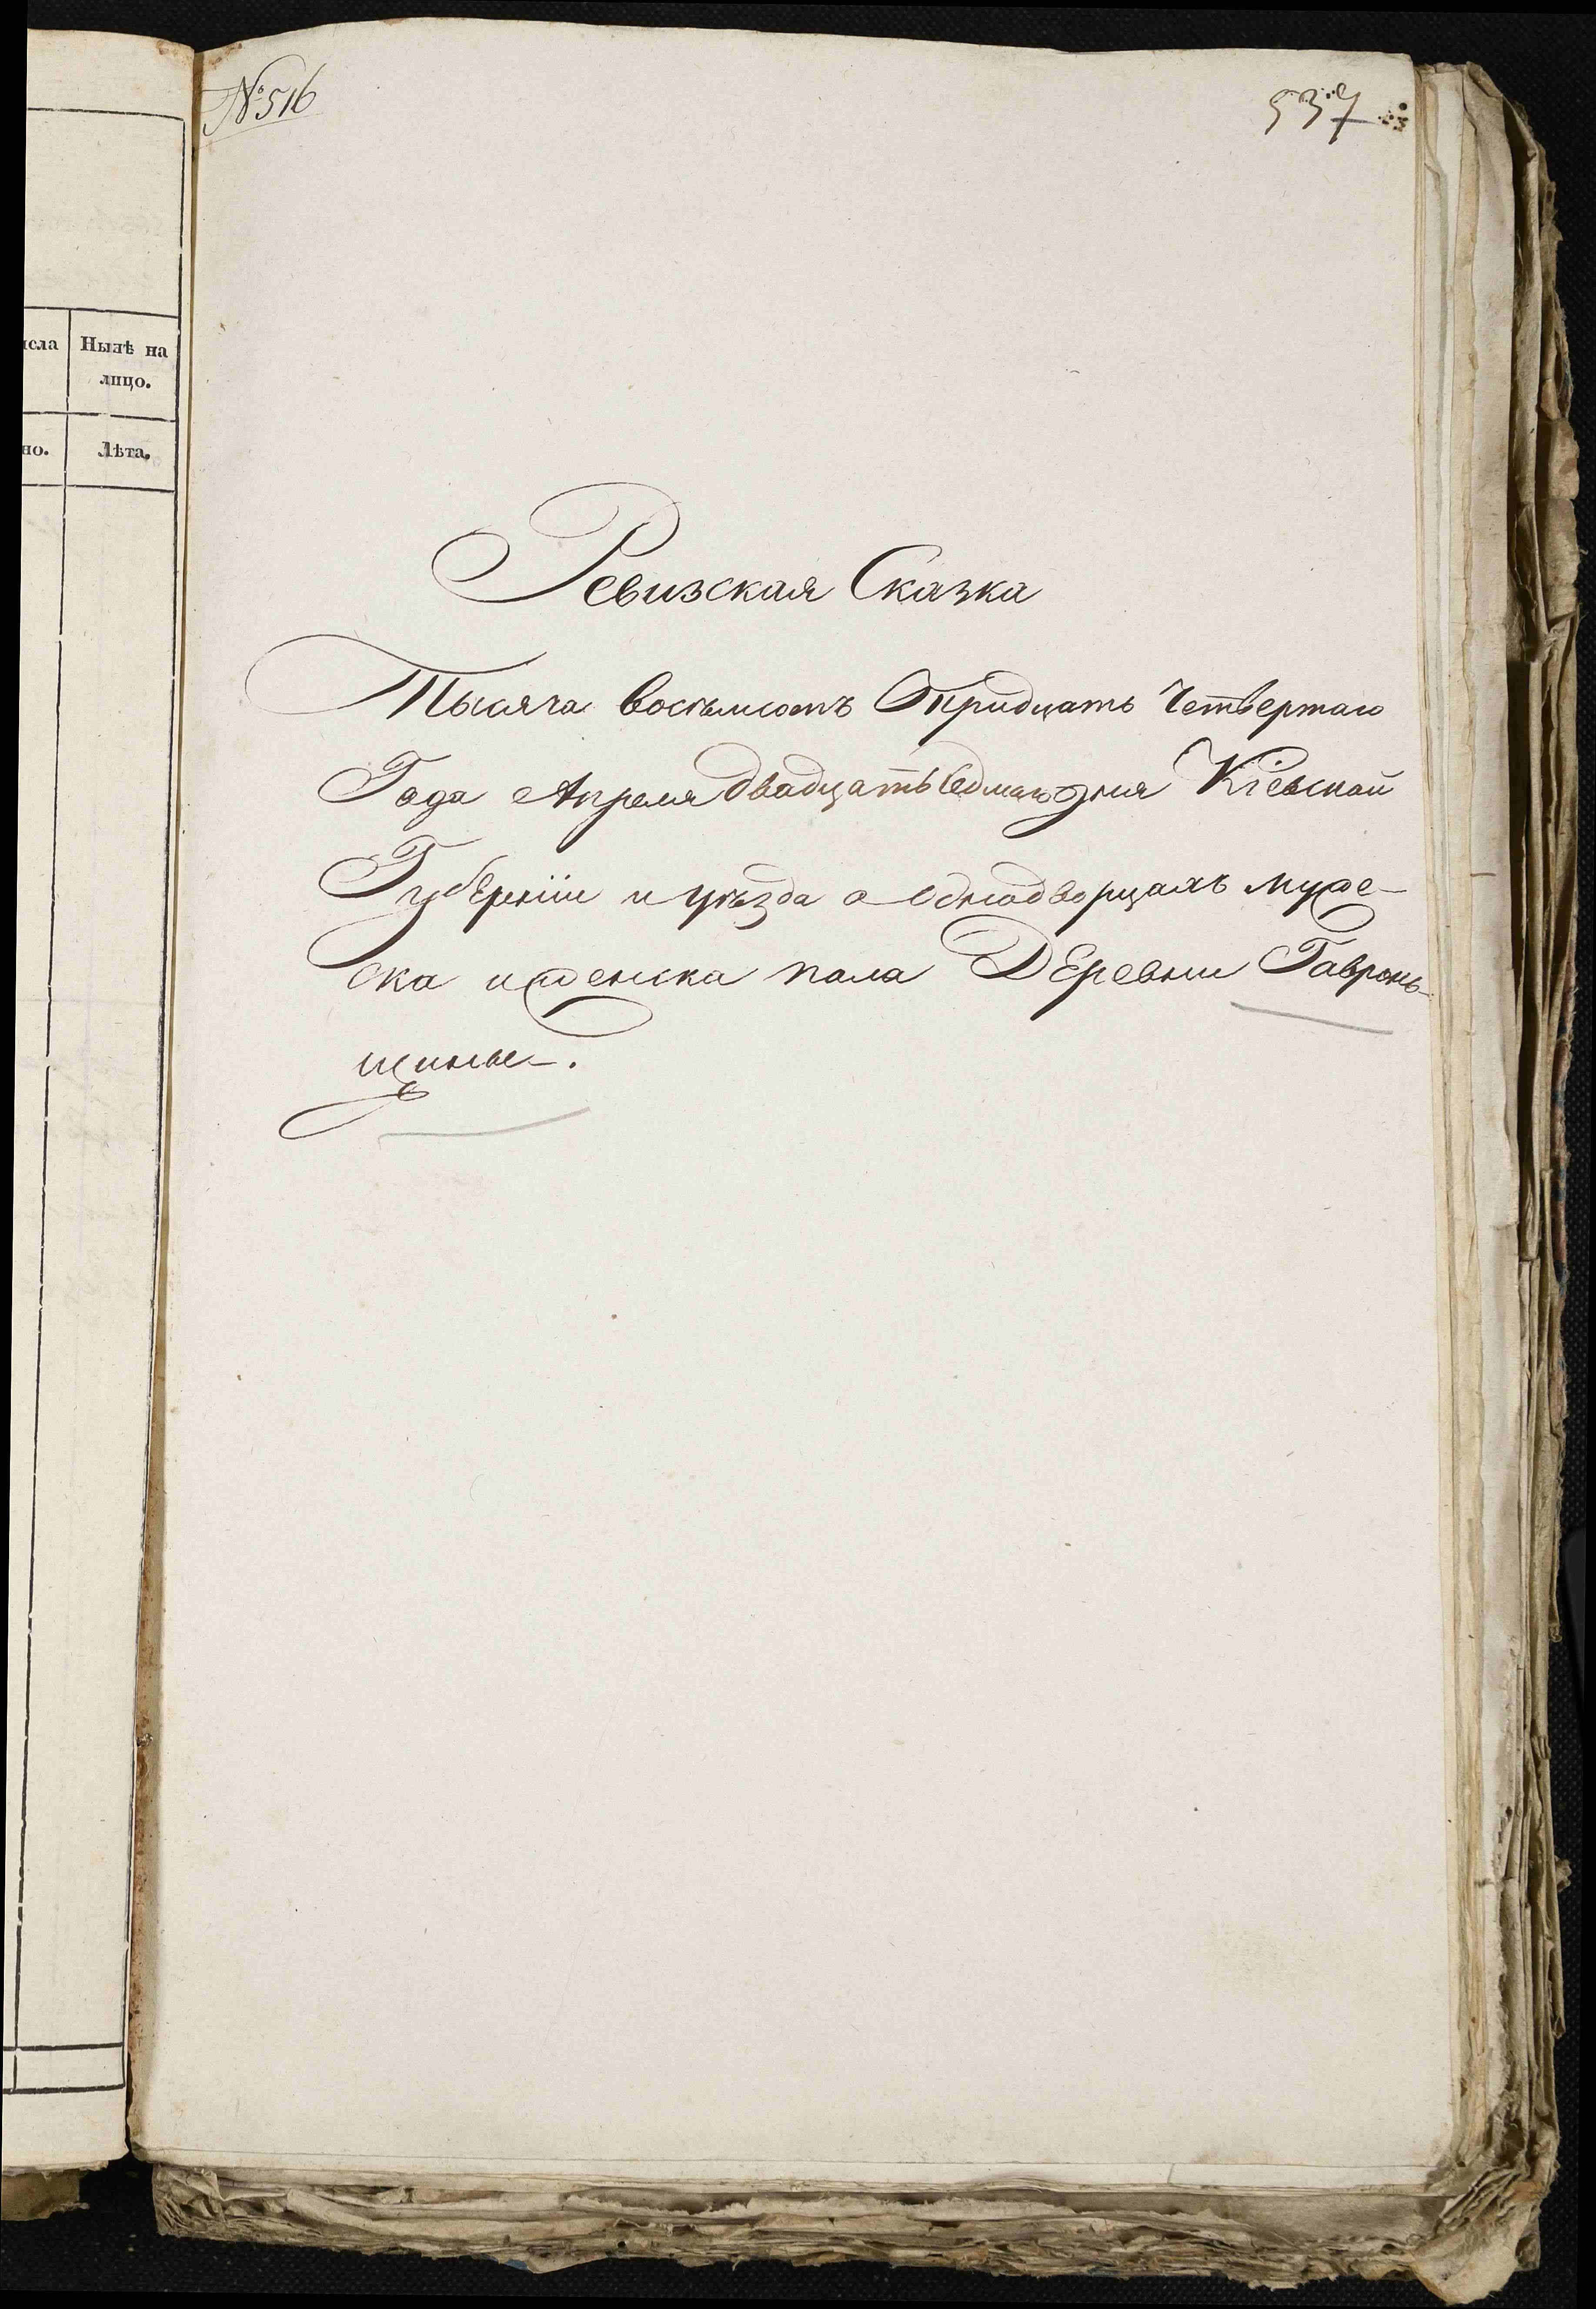 № 516
537
исла
Нынѣ на
лицо.
но.
Лѣта.
Ревизская Сказка
Тысяча восемьсотъ тридцать четвертаго
Года Апреля двадцать седмаго дня Кіевской
Губерніи и уѣзда о однодворцахъ муже-
ска и женска пола Деревни Гавронь-
щины.